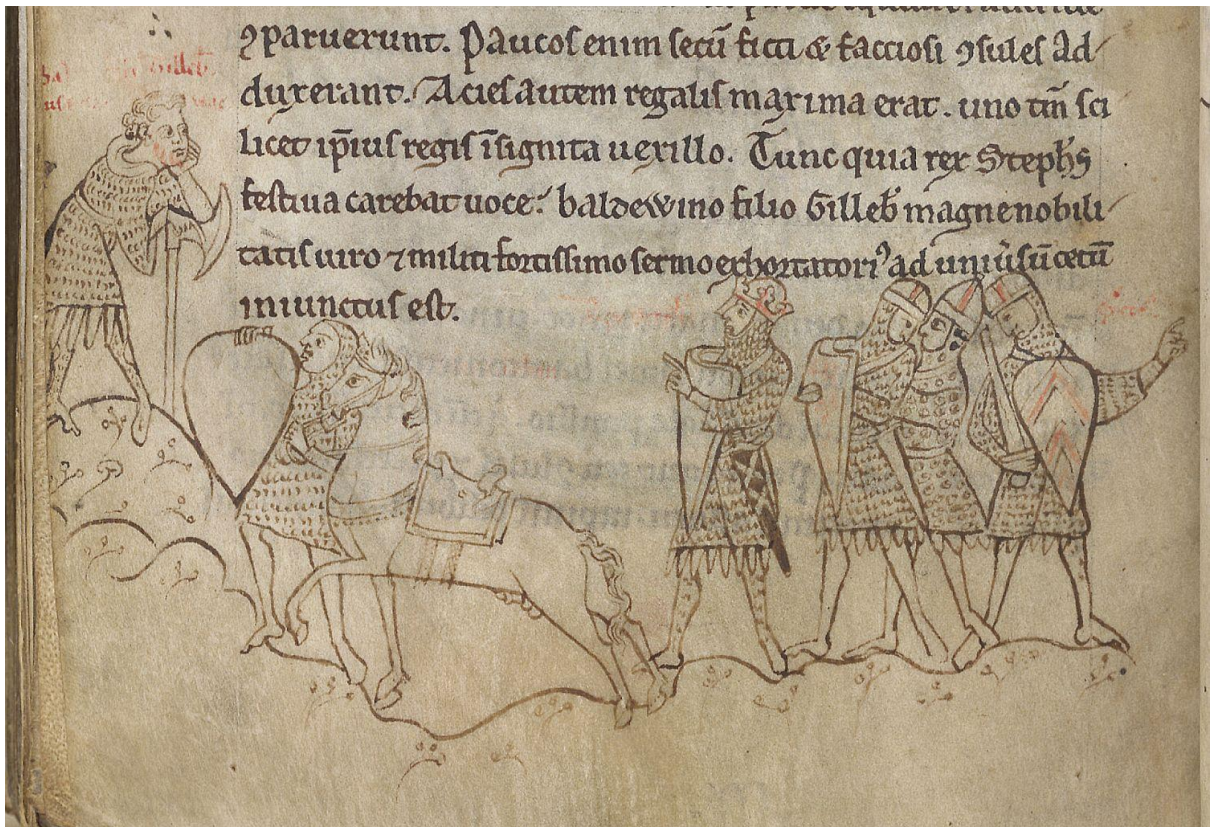 ꝯparuerunt. Paucos enim secū ficti & facciosi ꝯsules ad/
duxerant. Acies autem regalis maxima erat. uno tm̄ sci
licet ip̄ius regis īsignita uexillo. Tunc quia rex Steph̄s
festiua carebat uoce: baldewino filio Gilleb̄ magne nobili/
tatis uiro ⁊ militi fortissimo sermo exhortatoriꝰ ad uniūsū cetū
iniunctus est.